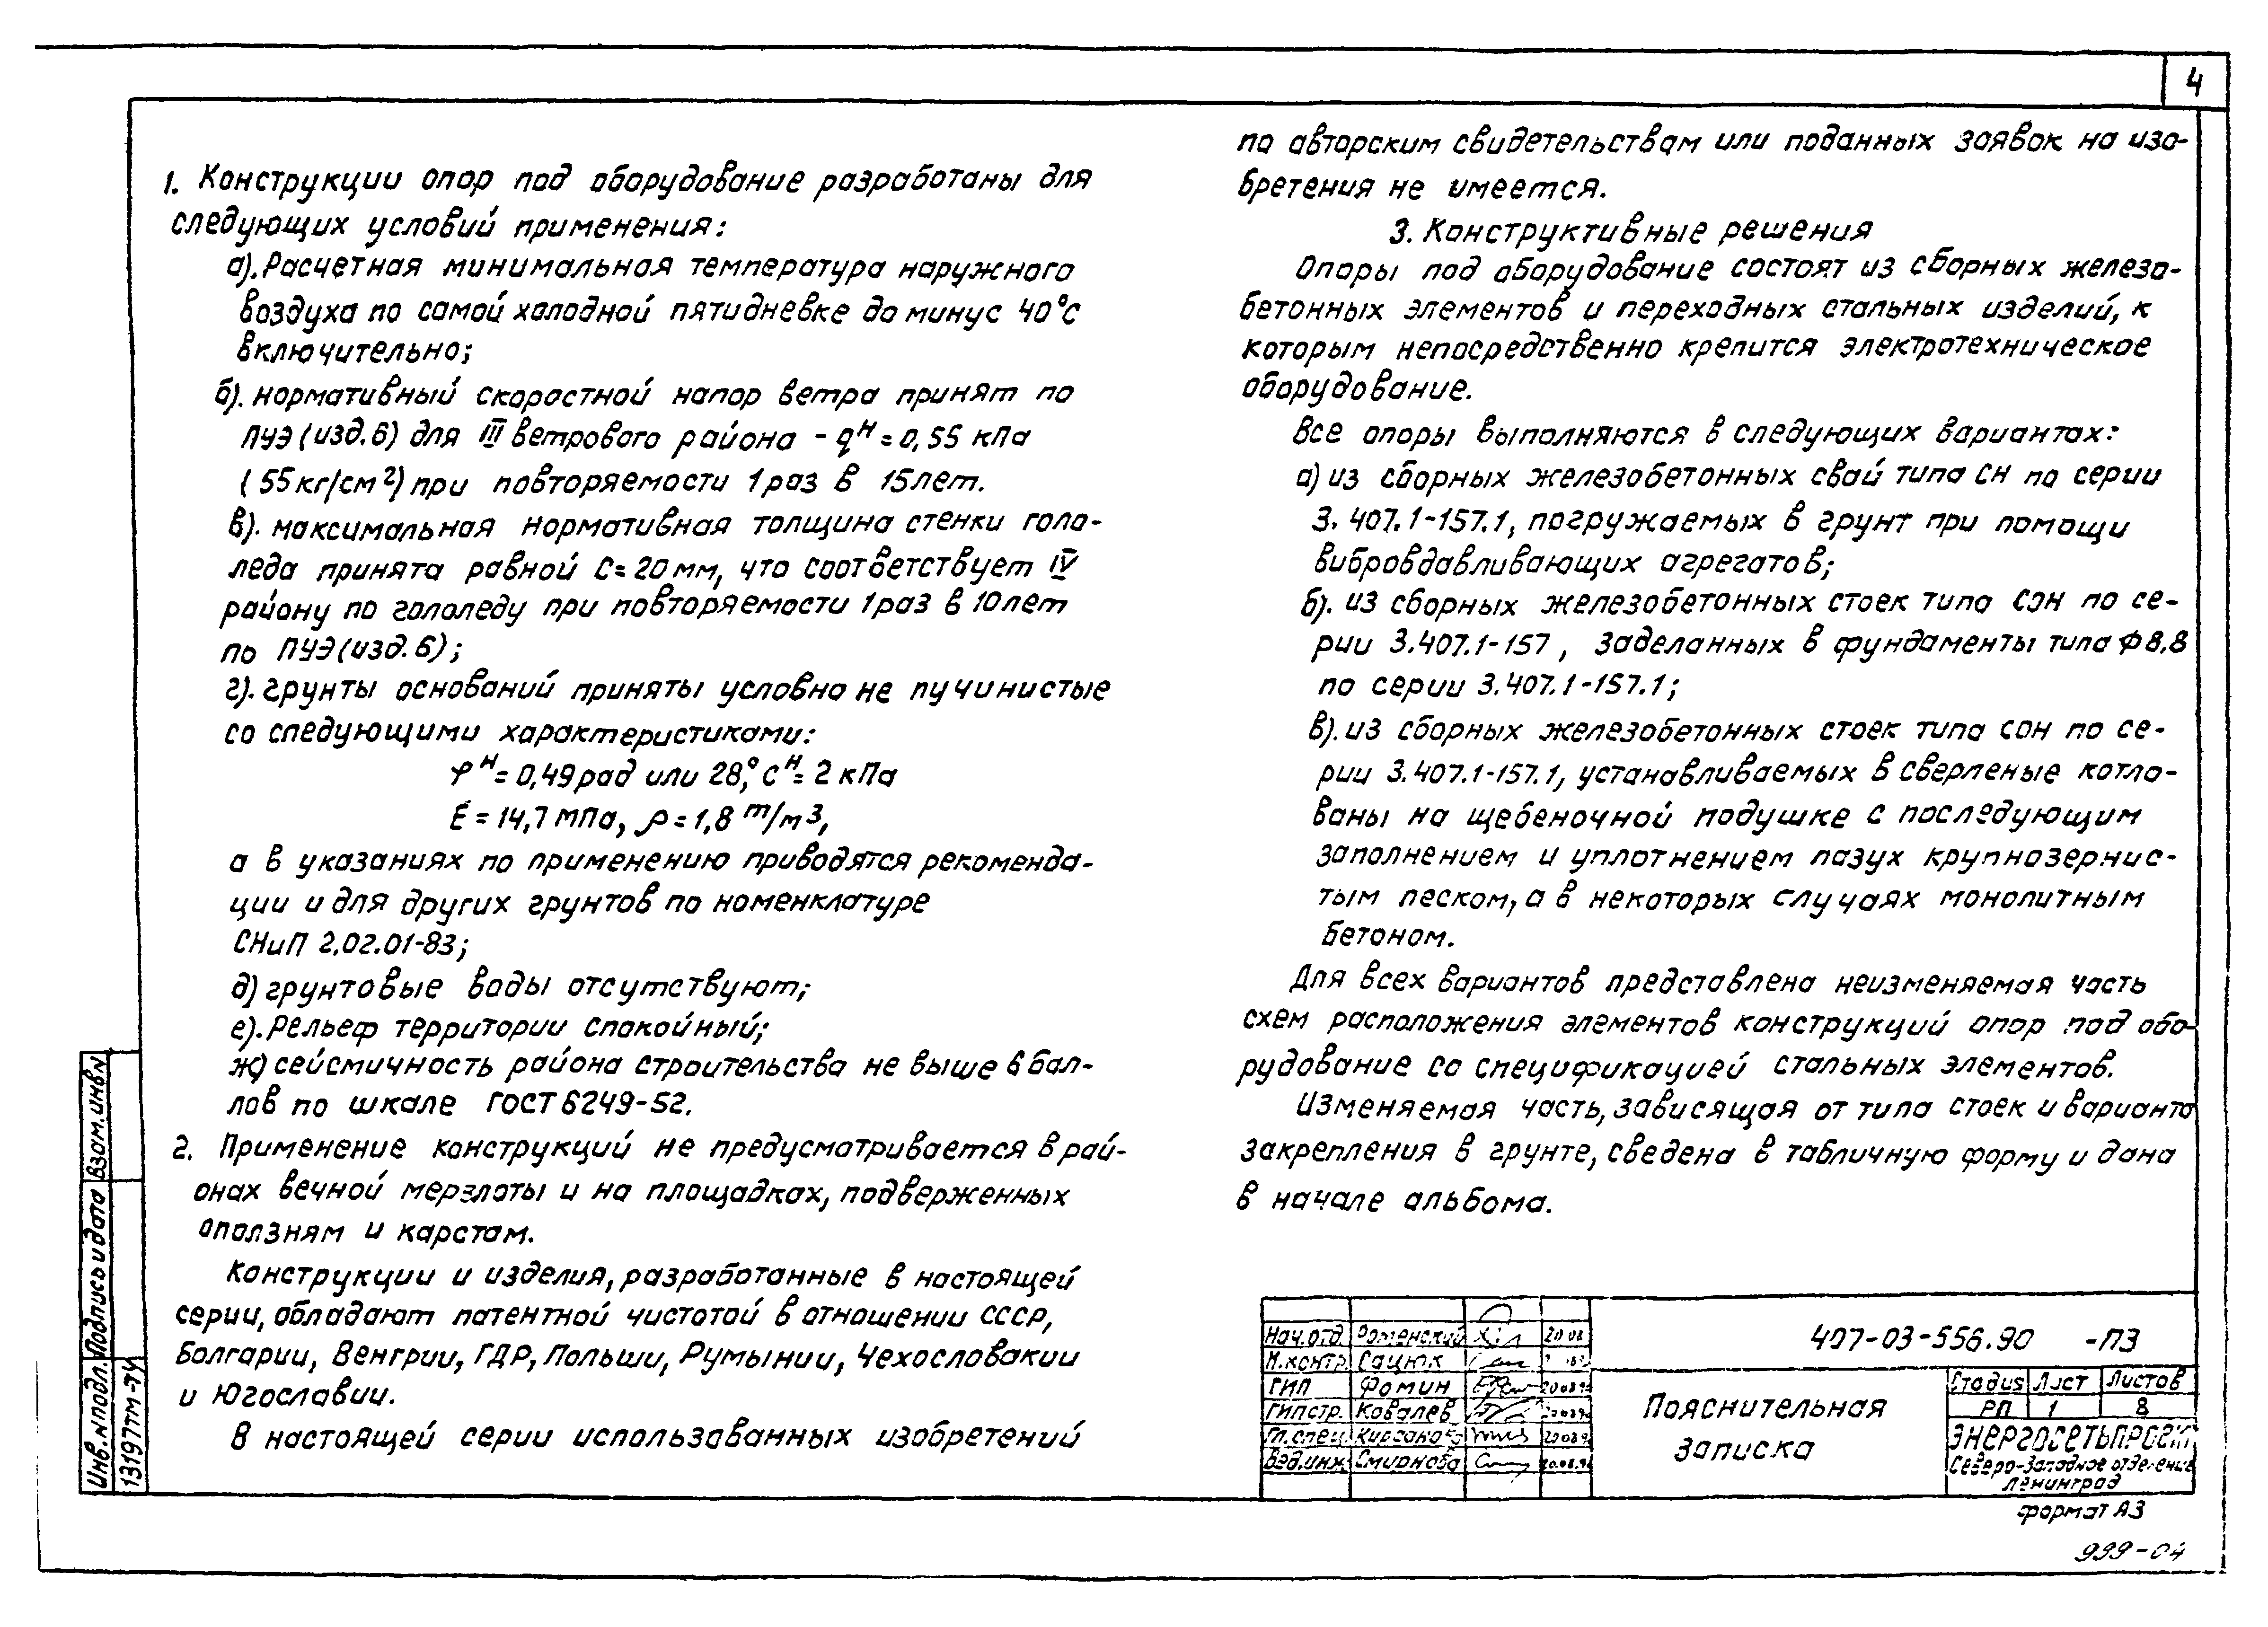 4
1. Конструкции опор под оборудование разработаны для
следующих условий применения:
а). Расчетная минимальная температура наружного
воздуха по самой холодной пятидневке до минус 40°С
включительно;
б). нормативный скоростной напор ветра принят по
ПУЭ (изд. 6) для III ветрового района - qᴴ = 0,55 кПа
(55 кг/см²) при повторяемости 1 раз в 15 лет.
в). максимальная нормативная толщина стенки голо-
леда принята равной С = 20 мм, что соответствует IV
району по гололеду при повторяемости 1 раз в 10 лет
по ПУЭ (изд. 6);
г). грунты оснований приняты условно не пучинистые
со следующими характеристиками:
φᴴ = 0,49 рад или 28°, Сᴴ = 2 кПа
Е = 14,7 МПа, ρ = 1,8 т/м³,
а в указаниях по применению приводятся рекоменда-
ции и для других грунтов по номенклатуре
СНиП 2.02.01-83;
д) грунтовые воды отсутствуют;
е). Рельеф территории спокойный;
ж) сейсмичность района строительства не выше 6 бал-
лов по шкале ГОСТ 6249-52.
2. Применение конструкций не предусматривается в рай-
онах вечной мерзлоты и на площадках, подверженных
оползням и карстам.
Конструкции и изделия, разработанные в настоящей
серии, обладают патентной чистотой в отношении СССР,
Болгарии, Венгрии, ГДР, Польши, Румынии, Чехословакии
и Югославии.
В настоящей серии использованных изобретений
по авторским свидетельствам или поданных заявок на изо-
бретения не имеется.
3. Конструктивные решения
Опоры под оборудование состоят из сборных железо-
бетонных элементов и переходных стальных изделий, к
которым непосредственно крепится электротехническое
оборудование.
Все опоры выполняются в следующих вариантах:
а) из сборных железобетонных свай типа СН по серии
3.407.1-157.1, погружаемых в грунт при помощи
вибровдавливающих агрегатов;
б). из сборных железобетонных стоек типа СОН по се-
рии 3.407.1-157, заделанных в фундаменты типа Ф8.8
по серии 3.407.1-157.1;
в). из сборных железобетонных стоек типа СОН по се-
рии 3.407.1-157.1, устанавливаемых в сверленые котло-
ваны на щебеночной подушке с последующим
заполнением и уплотнением пазух крупнозернис-
тым песком, а в некоторых случаях монолитным
бетоном.
Для всех вариантов представлена неизменяемая часть
схем расположения элементов конструкций опор под обо-
рудование со спецификацией стальных элементов.
Изменяемая часть, зависящая от типа стоек и варианта
закрепления в грунте, сведена в табличную форму и дана
в начале альбома.
Взам. инв N
Подпись и дата
Инв. N подл.
13197тм-т4
Нач. отд. Роменский 20.08.
Н. контр. Сацюк
ГИП Фомин 20.08.9
ГИП стр. Ковалев
Гл. спец. Кирсанова 20.08.9
Вед. инж. Смирнова 20.08.9
407-03-556.90 -ПЗ
Пояснительная
записка
Стадия Лист Листов
РП 1 8
ЭНЕРГОСЕТЬПРОЕКТ
Северо-Западное отделение
Ленинград
формат А3
999-04